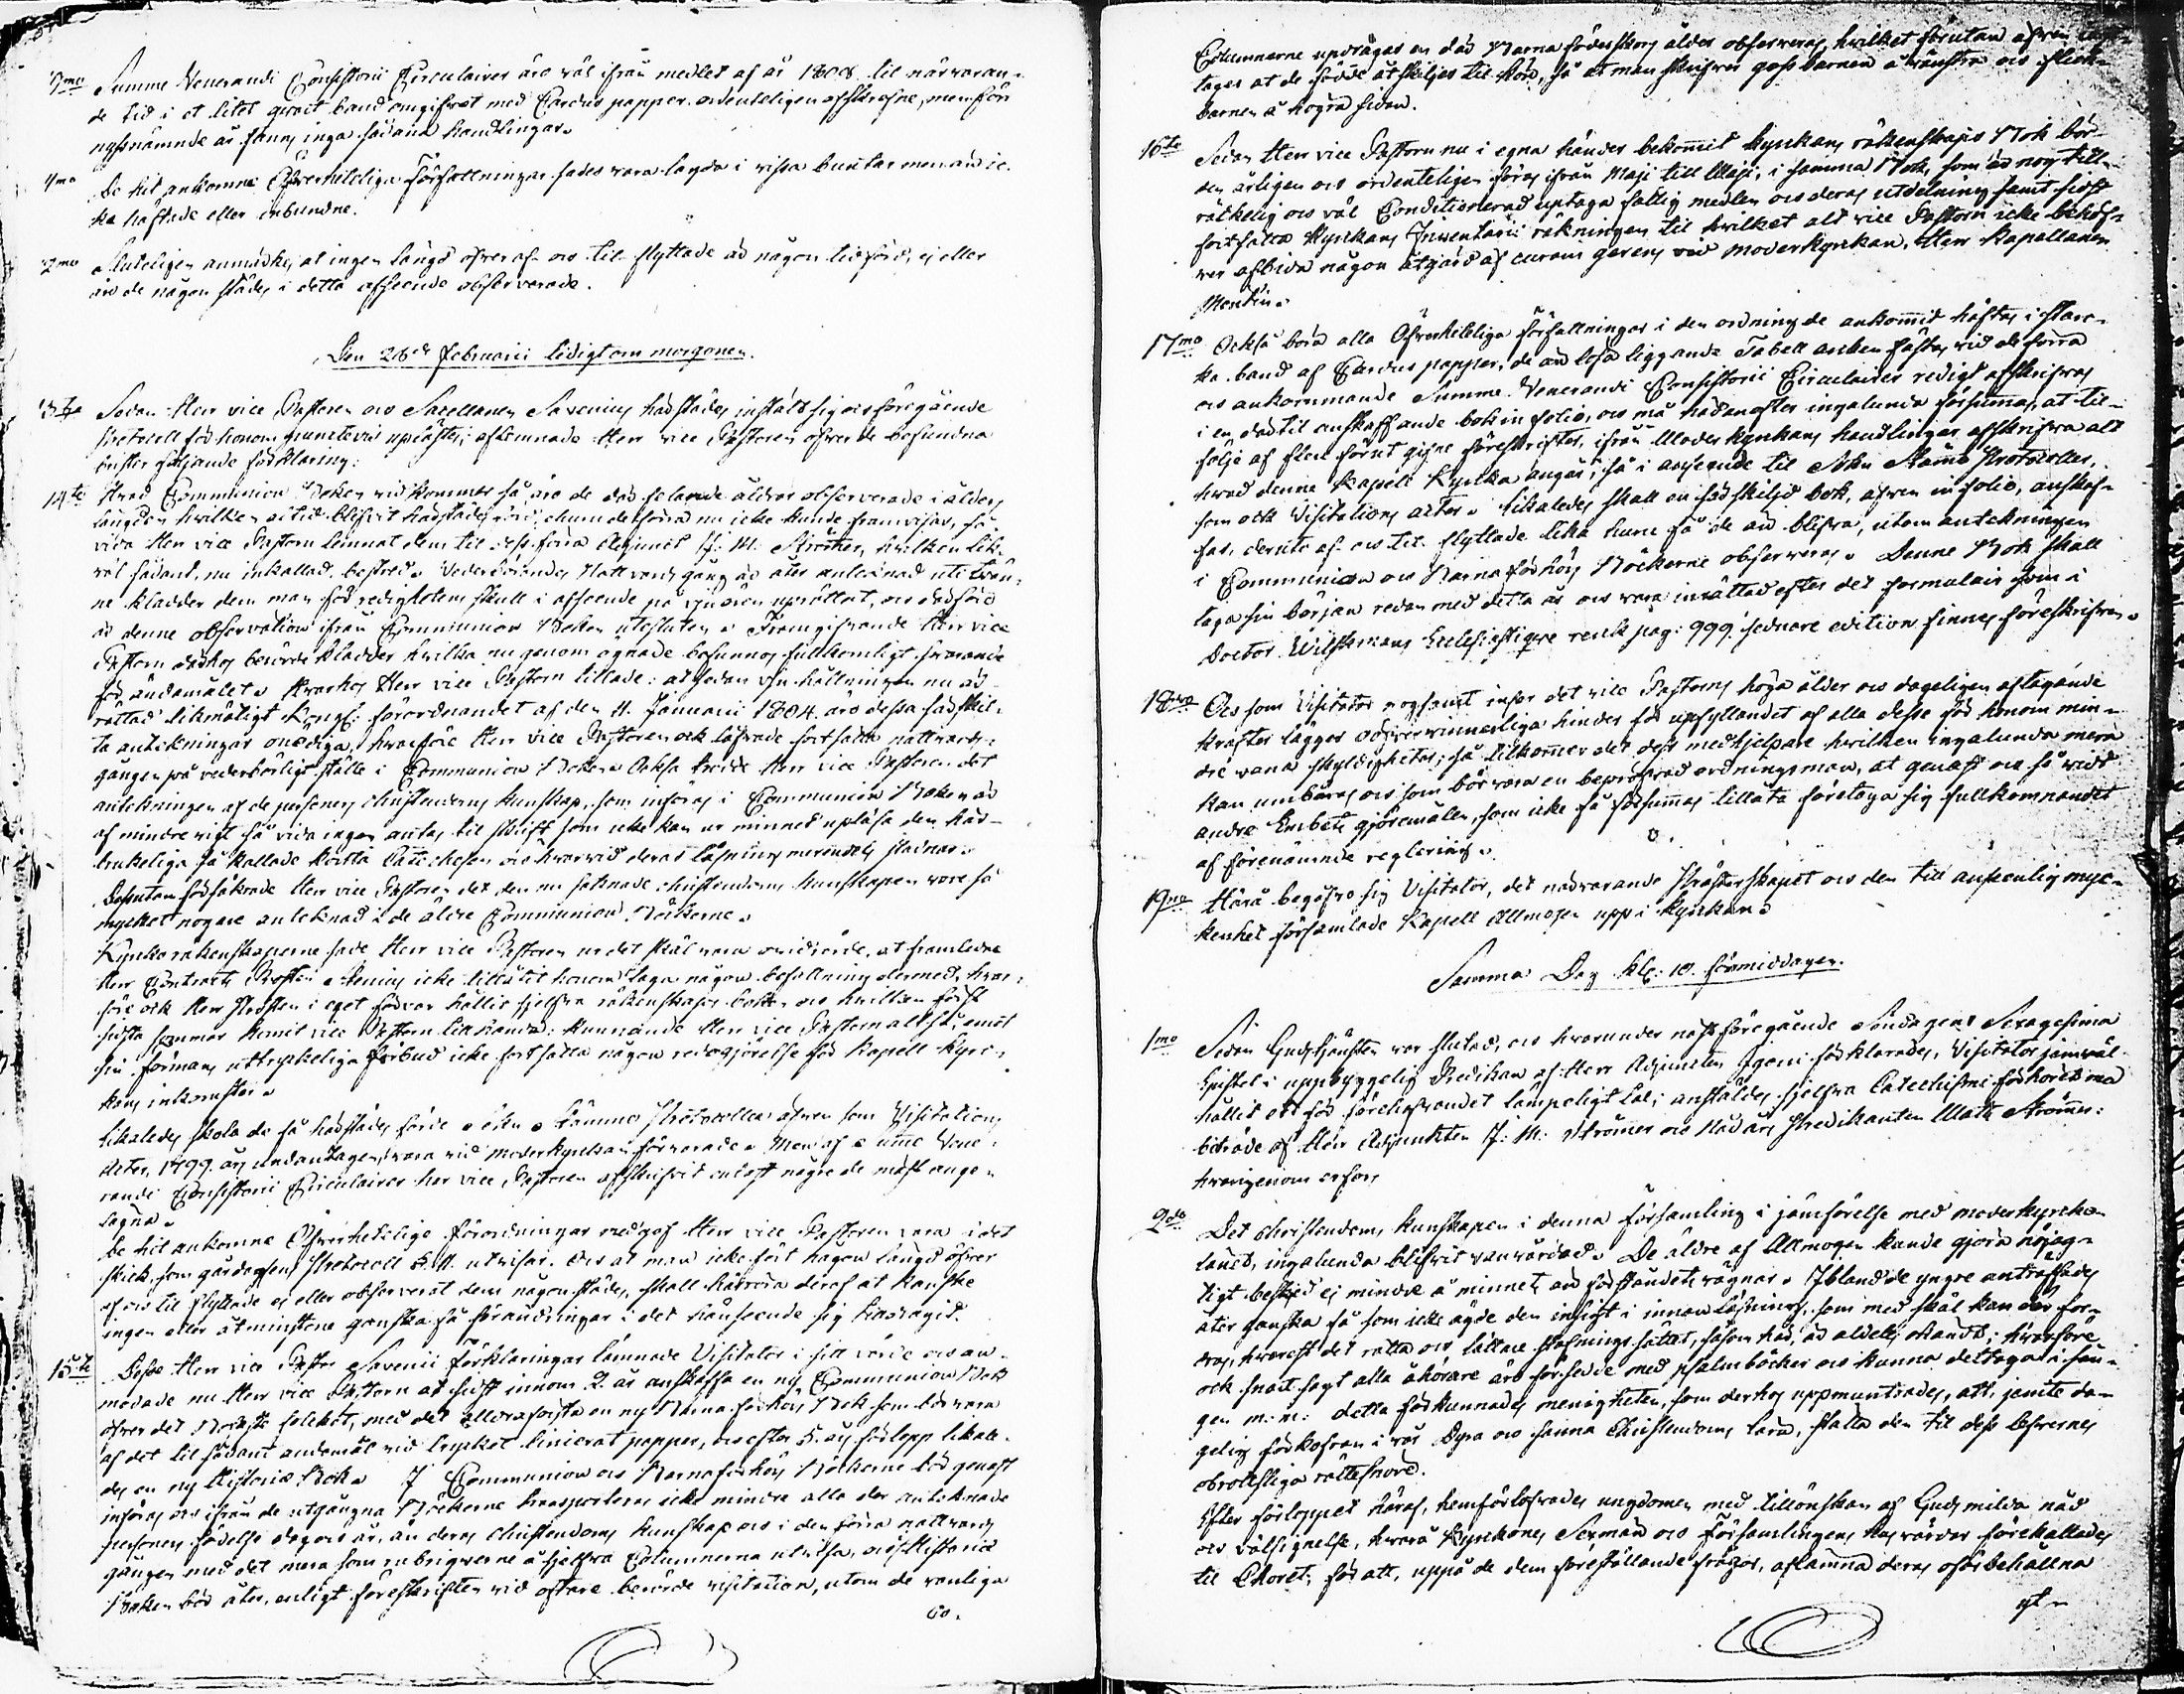 Summe Venerandi Consistorii Circulairer äro väl ifrån medlet af år 1808 til närvaran-
de tid i et litet qvart band omgifvet med Cardus papper ordenteligen afskrefne, men för
nyssnämnde år finnes inga sådana handlingar.
De hit ankomne Öfverhetliga Författningar sades vara lagda i vissa buntar men äro ic-
ke häftade eller inbundne.
Sluteligen anmärkes at ingen längd öfver af- och til flyttade är någon tid förd, ej eller
äro de någon städes i detta afseende observerade.
Den 28de Februarii tidigt om morgonen.
Sedan Herr vice Pastoren och Sacellanen Savenius härstädes instält sig och föregående
Protocoll för honom punctevis uplästes; aflemnade Herr vice Pastoren öfver de befundna
brister följande förklaring:
14to Hvad Communion Boken vidkommer så äro de där felande åldrar observerade i ålders
längden hvilken altid blifvit härstädes förd, ehuru det förra nu icke kunde framvisas, så
vida Herr vice Pastorn lemnat dem til dess förra Adjunct J: M: Strömer, hvilken lik-
väl sådant, nu inkallad, bestred. Vederbörandes Nattvards gång är åter antecknad uti
ne kladdar dem man för redighetens skull i afseende på uprättat, och därföre
är denne observation ifrån Communion Boken utesluten. Framgifvande Herr vice
Pastorn därhos berörde kladdar hvilka nu genom ögnade befunnos fullkomligt svarande
för ändamålet. Hvarhos Herr vice Pastorn tillade: at sedan hållningen nu är
rättad likmätigt Kongl: förordnandet af den 11. Januarii 1804. äro dessa särskil-
ta antekningar onödiga, hvarföre Herr vice Pastoren ock lofvade fortsätta nattvards-
gången på vederbörligt ställe i Communion Boken. Också trodde Herr vice Pastoren det
antekningen af de personers christendoms kunskap, som införas i Communion Boken är
af mindre vigt så vida ingen antas til skrift som icke kan ur minnet upläsa den här-
brukeliga så kallade korta Catechesen och hvarvid deras läsning merendels stadnar.
Dessutan försäkrade Herr vice Pastoren det den nu saknade christendoms kunskapen vore så
mycket nogare anteknad i de äldre Communion Böckerne.
Kyrko räkenskaperne sade Herr vice Pastoren ur det skäl vara ovidrörde, at framledne
Herr Contracts Prosten Stenius icke tillåtit honom taga någon befattning dermed, hvar-
före ock Herr Prosten i eget förvar hållit sjelfva räkenskaps boken och hvilken först
sista sommar kommit vice Pastorn tilhanda: kunnande Herr vice Pastorn altså, emot
sin förmans uttryckeliga förbud icke fortsätta någon redogjörelse för Kapell Kyrc-
kans inkomster.
Likaledes skola de så härstädes förde äldre Sämmo Protocoller äfven som Visitations
acter, 1799 års undantagen, vara vid moderkyrckan förvarade. Men af Summe Vene-
randi Consistorii Circulairer har vice Pastoren afskrifvit endast några de mäst ange-
lägna.
De hit ankomne Öfverhetelige Förordningar medgaf Herr vice Pastoren vara i det
skick, som gårdagsens Protocoll § 11. utvisar. Och at man icke fört någon längd öfver
af- och til flyttade ej eller observerat dem någonstädes, skall härröra deraf at kanske
ingen eller åtminstone ganska få förändringar i det hänseende sig tildragit.
15:to Desse Herr vice Pastor Savenii Förklaringar lämnade Visitator i sitt värde och an-
modade nu Herr vice Pastorn at sidst innom 2. år anskaffa en ny Communion Bok
öfver det Närpes folket, med det alldraförsta en ny Barnaförhörs Bok som bör vara
af det til sådant ändamål vid trycket linierat papper, och efter 5. års förlopp likale-
des en ny Historie Bok. I Communion och Barnaförhörs Böckerne bör genast
införas och ifrån de utgångna Böckerne transporteras icke mindre alla der anteknade
personers födelse dag och år, än deras christendoms kunskap och i den förra nattvards
gången med det mera som rubriqverne å sjelfva Columnerna utvisa, och Historie
Boken bör åter, enligt föreskriften vid oftare berörde visitation, utom de vanliga
Co-
Columnerne updragas en där Barna föderskors ålder observeras, hvilket förutan äfven
tages at de födde åtskiljas til kön, så at man skrifver goss barnen å vänstra och flick-
barnen å högra sidan.
16to Sedan Herr vice Pastorn nu i egna händer bekommit kyrkans räkenskaps Bok bör
den årligen och ordenteligen föras ifrån Maji till Maji, i samma Bok, som är nog till-
räckelig och väl Conditionerad uptaga fattig medlen och deras utdelning samt sidst
fortsätta Kyrkans Inventarii räkningen til hvilket alt vice Pastorn icke behöf-
ver afbida någon åtgärd af curam gerens vid moderkyrkan, Herr Kapellanen
Montin.
17mo Också böra alla Öfverhetliga Författningar i den ordning de ankommit häftas i star-
ka band af Cardus papper, de än lösa liggande Tabell anken fästas vid de förra
och ankommande Summe Venerandi Consistorii Circulairer redigt afskrifvas
i en dertil anskaffande bok in folio, och må hädanefter ingalunda försummas, at til-
följe af flere förut gifne föreskrifter, ifrån Moder kyrkans handlingar afskrifva alt
hvad denne Kapell Kyrka angår; så i anseende til Sockne Stämmo Protocoller,
som ock Visitations acter. Likaledes skall en särskildt bok, äfven in folio, anskaf-
fas, deruti af- och til flyttade lika huru få de än blifva, utom antekningen
i Communion och Barna förhörs Böckerne observeras. Denne Bok skall
taga sin början redan med detta år och vara inrättad efter det formulair som i
Doctor Wilskmans Ecclesiastiqve verk pag: 999. sednare edition finnes föreskrifven.
18vo Och som Visitator nogsamt inser det vice Pastorns höga ålder och dageligen aftagande
krafter lägger oöfvervinneliga hinder för upfyllandet af alla desse för honom min-
dre vana skyldigheter; så tilkommer det dess medhjelpare hvilken ingalunda mera
kan umbäras och som bör vara en bepröfvad ordningsman, at genast och så vidt
andre Embets gjöremålen, som icke få försummas tillåta företaga sig fullkomnandet
af förenämnde reglering.
19no Härå begåfvo sig Visitator, det närvarande Prästerskapet och den till ansenlig myc-
kenhet församlade Kapell Allmogen upp i kyrkan.
Samma Dag kl: 10. förmiddagen.
1mo Sedan Gudstjensten var slutad, och hvarunder näst föregående Söndagens Sexagesima
Epistel i uppbyggelig Predikan af Herr Adjuncten Igoni förklarades, Visitator jämväl
hållit ett för förehafvandet lämpeligt tal; anstäldes sjelfva Catechismi förhöret med
biträde af Herr Adjunkten J: M: Strömer och Nåd års Predikanten Matts Strömer:
hvarigenom erfors
2do Det christendoms kunskapen i denna Församling i jämförelse med moderkyrko-
länet, ingalunda blifvit vanvårdad. De äldre af Allmogen kunde gjöra nöjag-
tigt besked ej mindre å minnets än förståndets vägnar. Ibland de yngre anträffades
åter ganska få som icke ägde den insigt i innan läsning, som med skäl kan der for-
dras, hvarest det rätta och lättare stafnings sättet, såsom här, är aldeles okändt; hvarföre
ock snart sagt alla åhörare äro försedde med psalmböcker och kunna deltaga i sån-
gen m: m: detta förkunnades menigheten, som derhos uppmuntrades, att jemte da-
gelig förkofran i vår Dyra och sanna Christendoms lära, ställa den til dess lefvernes
obrottsliga rättesnöre.
Efter förloppet häraf, hemförlofvades ungdomen med tillönskan af Guds milda nåd
och välsignelse, hvarå Kyrkones Sexmän och Församlingens Rotevärdar förekallades
til Choret; för att, uppå de dem föreställande frågor, aflämna deras oförbehållna
yt-